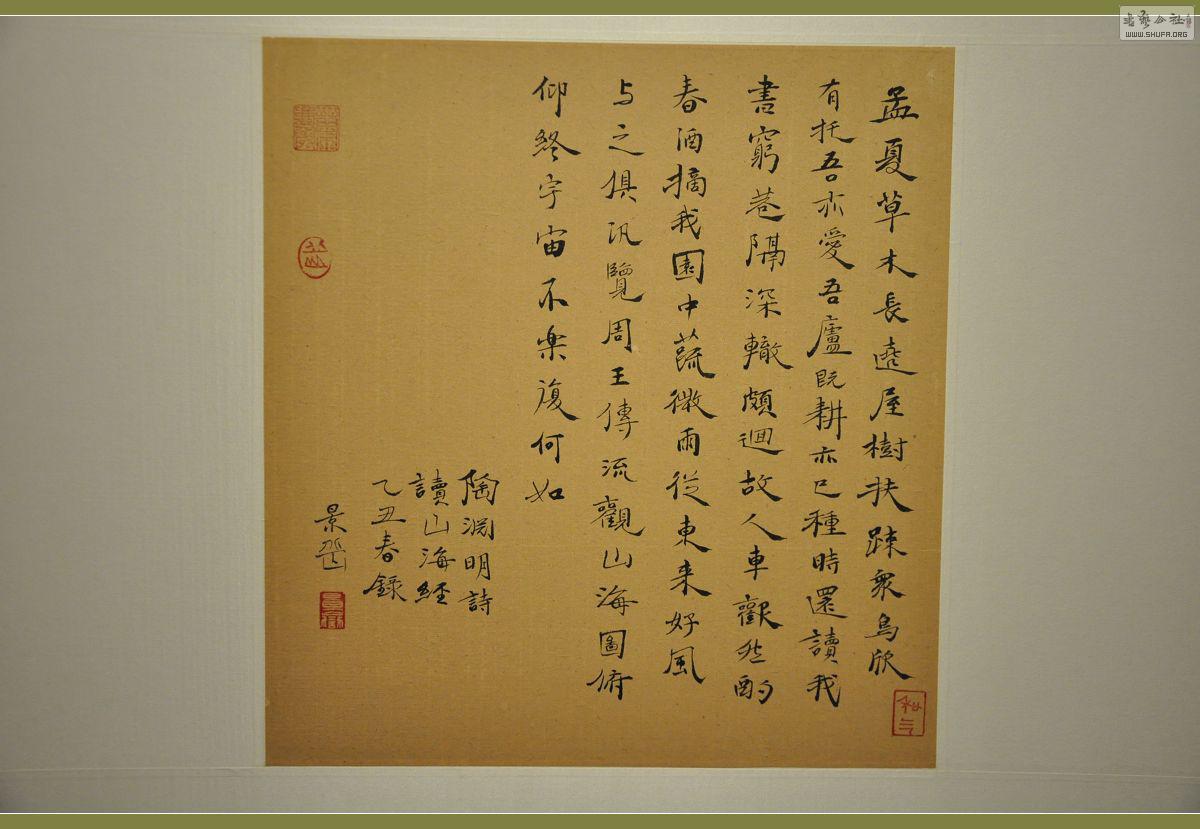 孟夏草木長遶屋樹扶踈衆鳥欣
有托吾亦愛吾廬既耕亦已種時還讀我
書窮巷隔深轍頗迴故人車歡然酌
春酒摘我園中蔬微雨從東来好風
与之俱汎覽周王傳流觀山海圖俯
仰終宇宙不楽復何如
陶渊明詩
讀山海経
乙丑春録
景
书艺公社
WWW.SHUFA.ORG